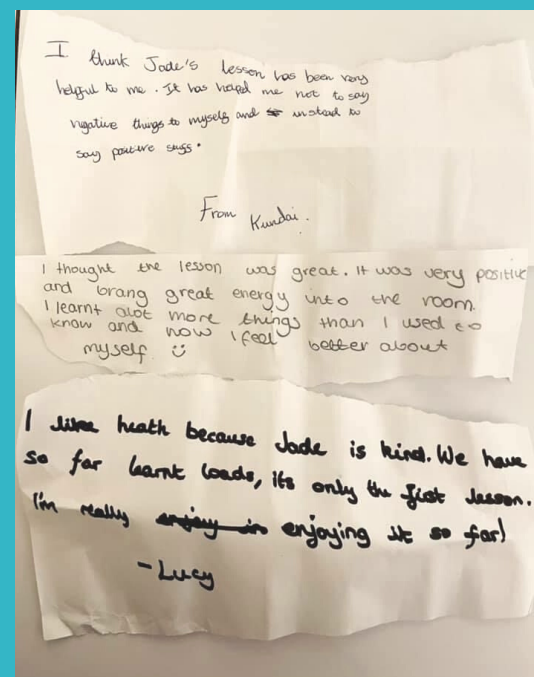 I think Jade's lesson has been very
helpful to me. It has helped me not to say
negative things to myself and instead to
say positive stuff.
From Kundai.
I thought the lesson was great. It was very positive
and brang great energy into the room.
I learnt alot more things than I used to
know and now I feel better about
myself ☺
I like heath because Jade is kind. We have
so far learnt loads, its only the first lesson.
I'm really enjoy in enjoying it so far!
-Lucy